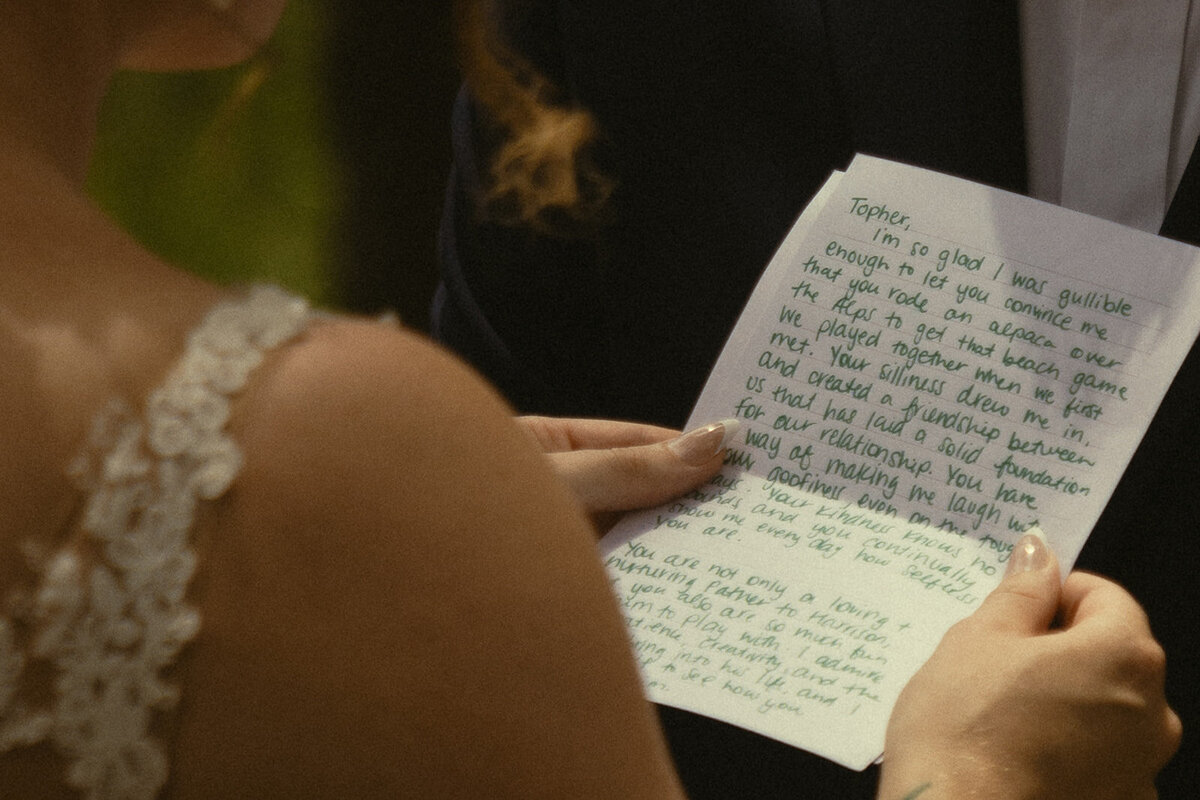 Topher,
I'm so glad I was gullible
enough to let you convince me
that you rode an alpaca over
the Alps to get that beach game
we played together when we first
met. Your silliness drew me in,
and created a friendship between
us that has laid a solid foundation
for our relationship. You have
way of making me laugh with
goofiness even on the toug
Your kindness knows no
and you continually
show me every day how selfless
you are.
You are not only a loving +
nurturing father to Harrison,
you also are so much fun
to play with. I admire
creativity, and the
into his life, and I
to see how you